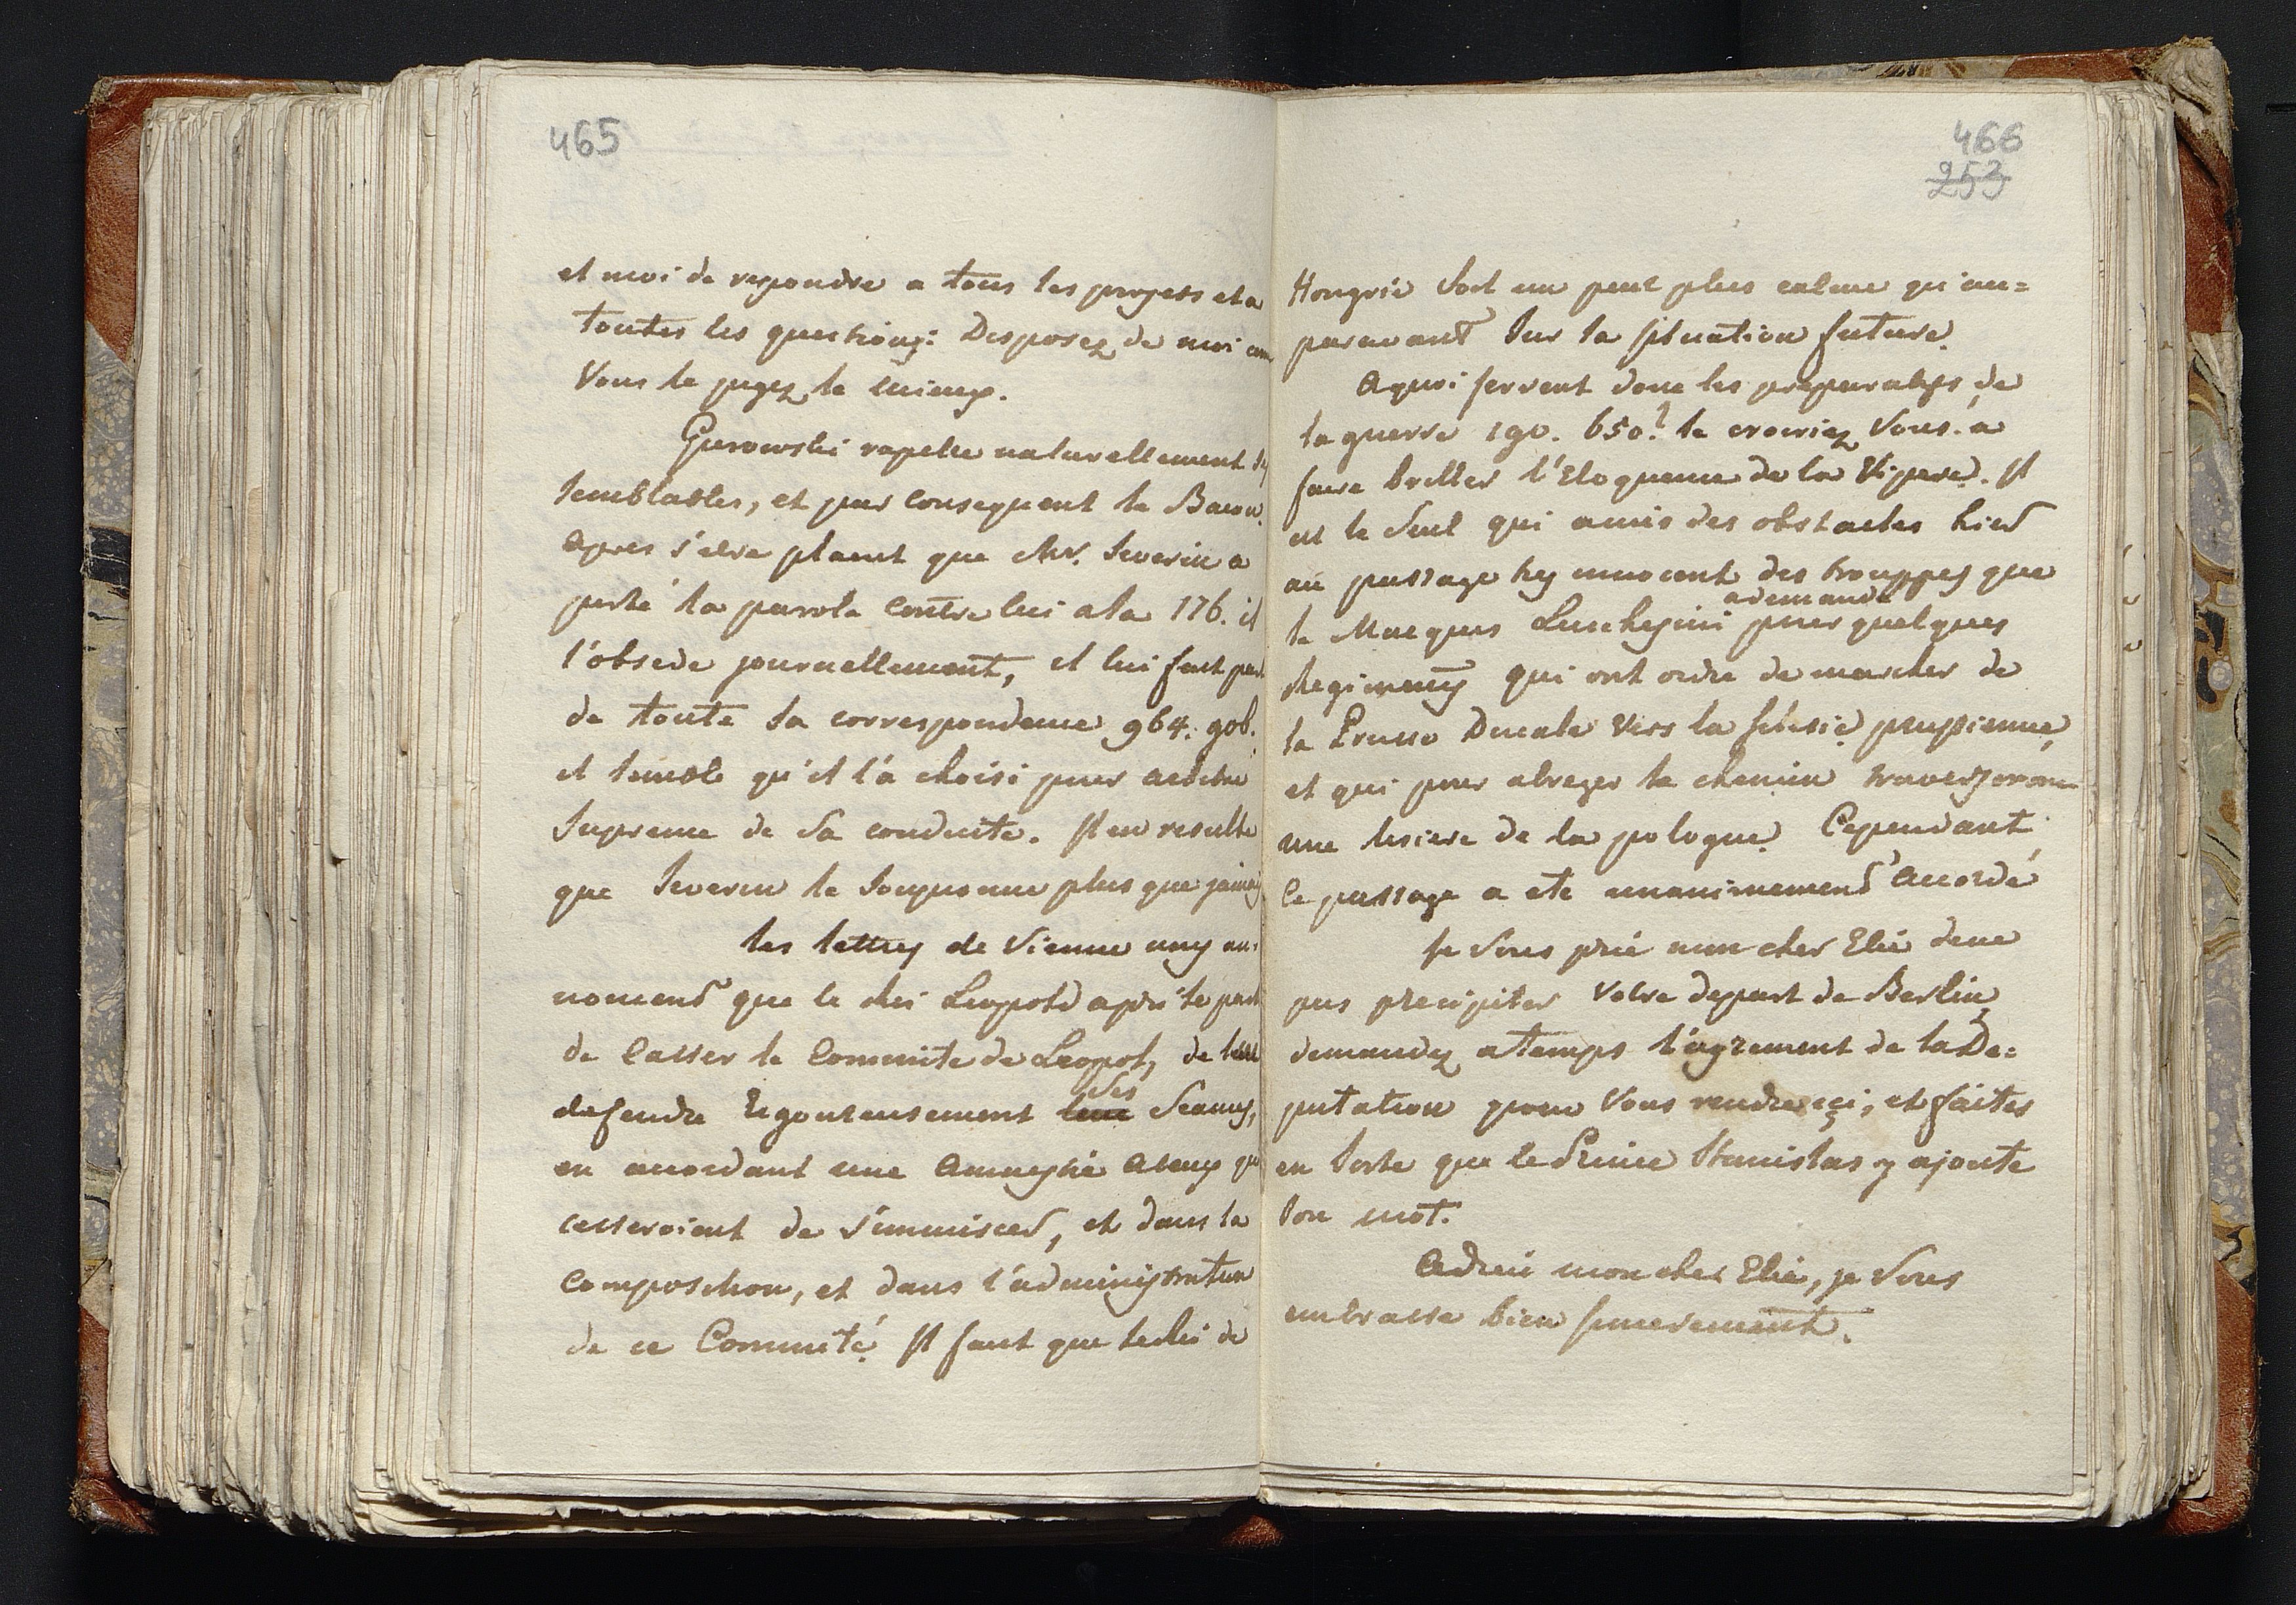 465
et moi de repondre a tous les projets et a
toutes les questions: Disposez de moi com
Vous le jugez le mieux.
Gurowski rapelle naturellement
semblables, et par consequent le Baron.
Apres s'etre plaent que Mr. Severin a
porté la parole contre lui a la 176. il
l'obsede journellement, et lui fait part
de toute sa correspondence 964. gob.
il semble qu'il l'a choisi pour arbitre
supreme de sa conduite. Il en resulte
que Severin le soupconne plus que jamais
les lettres de Vienne nous an=
noncent que le Roi Leopold a pris le parti
de casser le Committe de Leopol, de leur
defendre rigoureusement leur ses Seances,
en accordant une Amnestie a ceux qui
cesseroient de s'immiscer, et dans la
composition, et dans l'administration
de ce Committé. Il faut que le Roi de
466
253
Hongrie soit un peu plus calme qu'au=
paravant sur la situation future.
A quoi servent donc les preparatifs de
la guerre 190. 650.? le croiriez Vous. a
faire briller l'Eloquence de la Vipere. Il
est le seul qui a mis des obstacles hier
au passage innocent des trouppes que
a demandé
le Marquis Lucchesini pour quelques
Regiments qui ont ordre de marcher de
la Prusse Ducale vers la silesie prussienne,
et qui pour abreger le chemin traverseront
une lisiere de la pologne. Cependant
le passage a eté unanimement accordé
Je Vous prie mon cher Elie de ne
pas precipiter Votre depart de Berlin,
demandez a temps l'agrement de la De=
putation pour Vous rendre içi, et faites
en sorte que le Prince Stanislas y ajoute
son mot.
Adieu mon cher Elie, je Vous
embrasse bien sincerement.